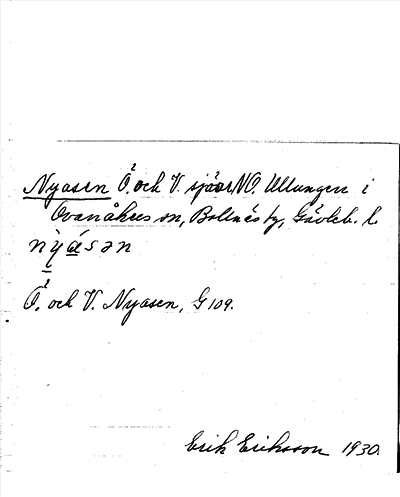 Nyasen Ö. och V. sjöar NO. Ullungen i
Ovanåkers sn, Bollnäs tg, Gävleb. l.
nỳásən
Ö. och V. Nyasen, G 109.
Erik Eriksson 1930.